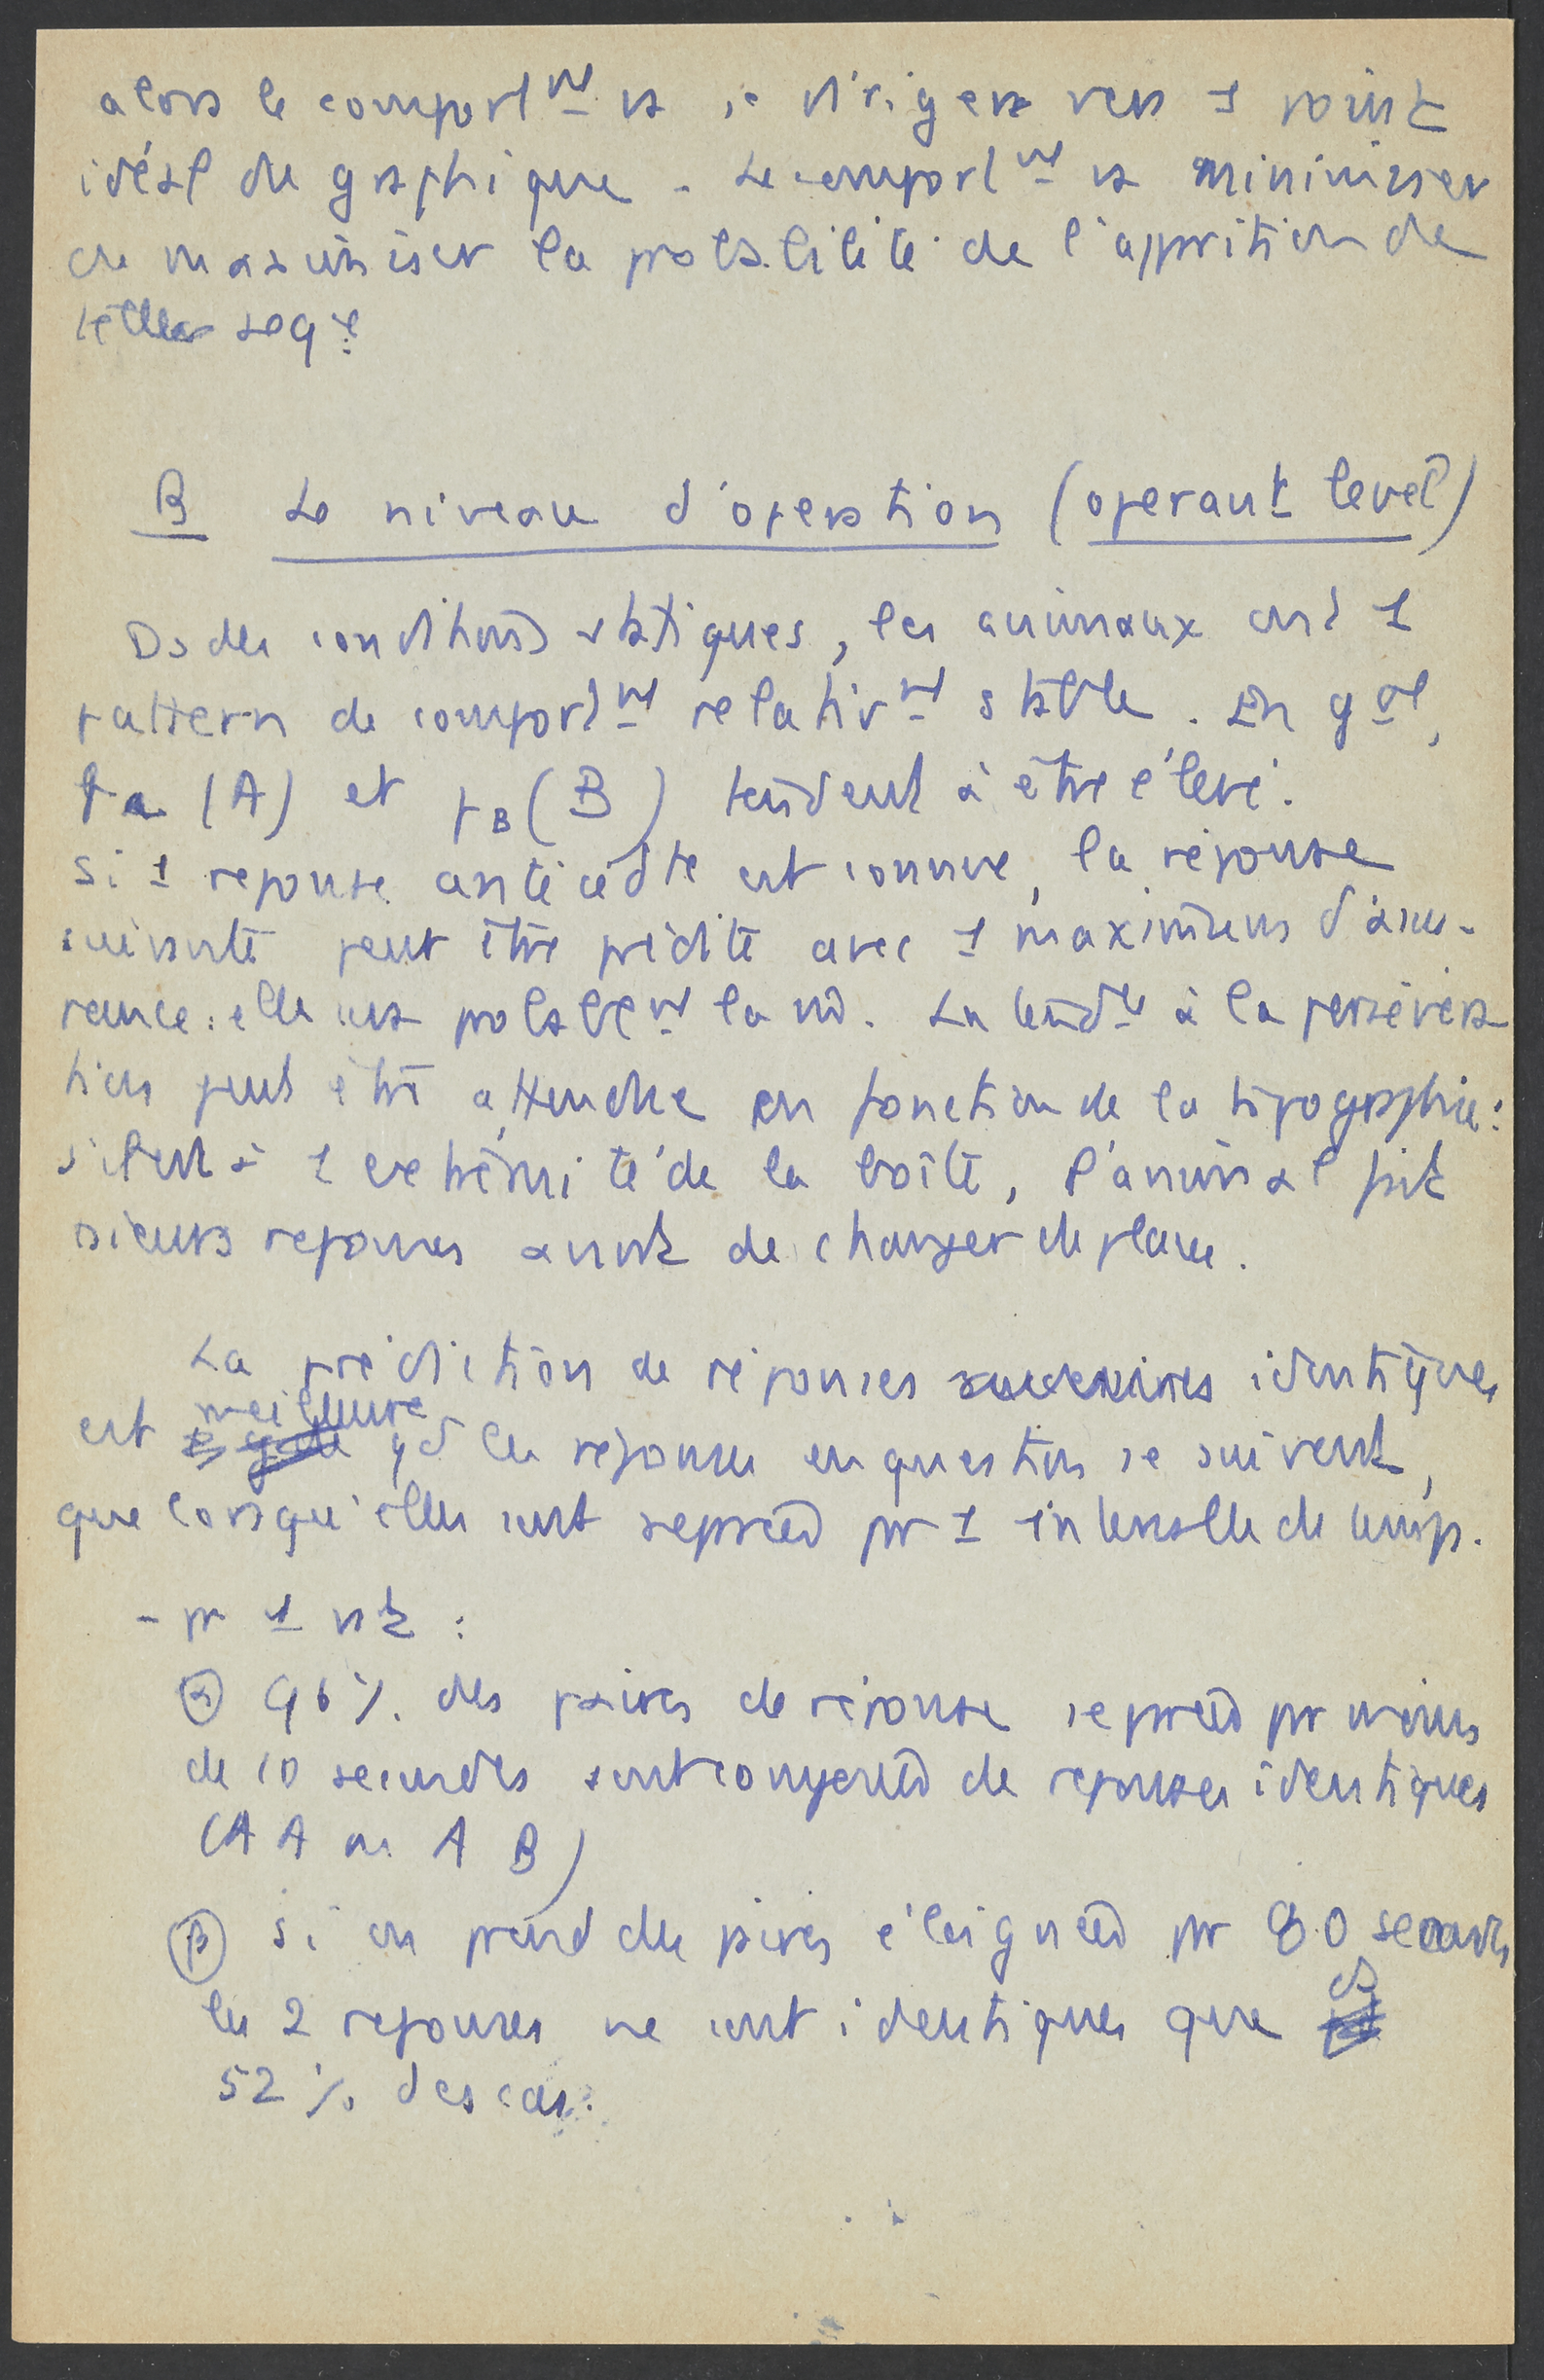 alors le comport^nt va se diriger vers 1 point
idéal du graphique - Le comport^nt va minimiser
ou maximiser la probabilité de l'apparition de
telles seq^e
B Le niveau d'operation (operant level)
Ds des conditions statiques, les animaux ont 1
pattern de comport^nt relativ^nt stable. En g^al,
pa (A) et pB (B) tendent à être élevé.
Si 1 reponse antécédte est connue, la réponse
suivante peut être prédite avec 1 maximum d'assu-
rance : elle sera probabl^nt la m̂. La tend^ce à la persévéra
tion peut être attendue en fonction de la topographie :
situé à 1 extrémité de la boîte, l'animal fait
sieurs reponses avant de changer de place.
La prédiction de réponses successives identiques
est meilleure qd les reponses en question se suivent,
que lorsqu'elles sont séparées pr 1 intervalle de temps.
- pr 1 rat :
α 96 %. des paires de réponse séparées pr moins
de 10 secondes sont composées de reponses identiques
(A A ou A B)
β Si on prend des paires éloignées pr 80 secondes
les 2 reponses ne sont identiques que ds
52 % des cas.